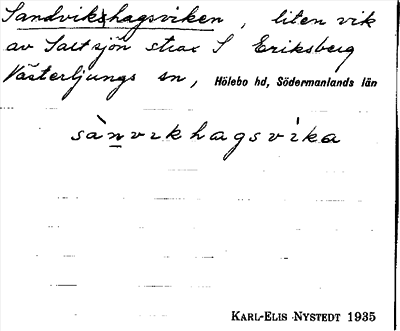 Sandvikshagsviken, liten vik
av Saltsjön strax S Eriksberg
Västerljungs sn, Hölebo hd, Södermanlands län
sànvikhagsvìka
KARL-ELIS NYSTEDT 1935